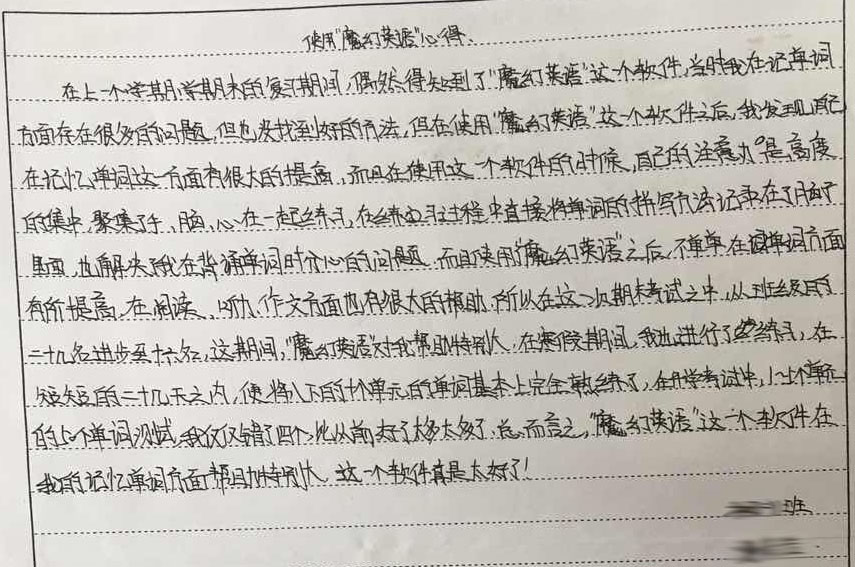 使用“魔幻英语”心得、
在上一个学期学期末的复习期间,偶然得知到了“魔幻英语”这一个软件,当时我在记单词
方面存在很多的问题,但也没找到好的方法,但在使用“魔幻英语”这一个软件之后,我发现自己
在记忆单词这一方面有很大的提高,而且在使用这一个软件的时候,自己的注意力是高度
的集中,聚集了手、脑、心在一起练习,在练习过程中直接将单词的拼写方法记录在了脑子
里面,也解决了我在背诵单词时分心的问题,而且使用“魔幻英语”之后,不单单在单词方面
有所提高,在阅读、听力、作文方面也有很大的帮助,所以在这一次期末考试之中,从班级的
二十几名进步至十六名,这期间,“魔幻英语”对我帮助特别大,在寒假期间,我也进行了练习,在
短短的二十几天之内,便将八下的十个单元的单词基本上完全熟练了,在开学考试中,1~个单元
的50个单词测试,我仅仅错了四个,比从前好了太多太多了,总而言之,“魔幻英语”这一个软件在
我的记忆单词方面帮助特别大,这一个软件真是太好了!
班